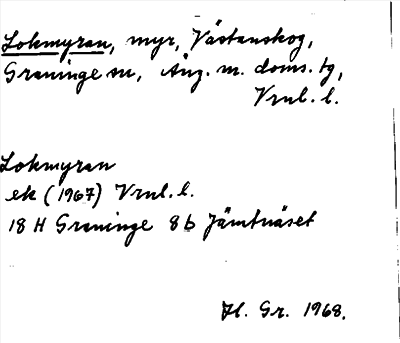 Lokmyran, myr, Västanskog,
Graninge sn, Ång. m. doms. tg,
Vrnl. l.
Lokmyran
ek (1967) Vrnl. l.
18 H Graninge 8 b Jämtnäset
Hl. Gr. 1968.